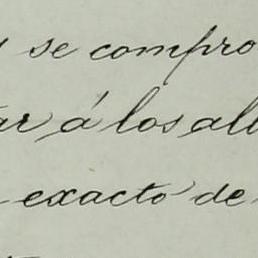 se compro
ar á los alb
exacto de